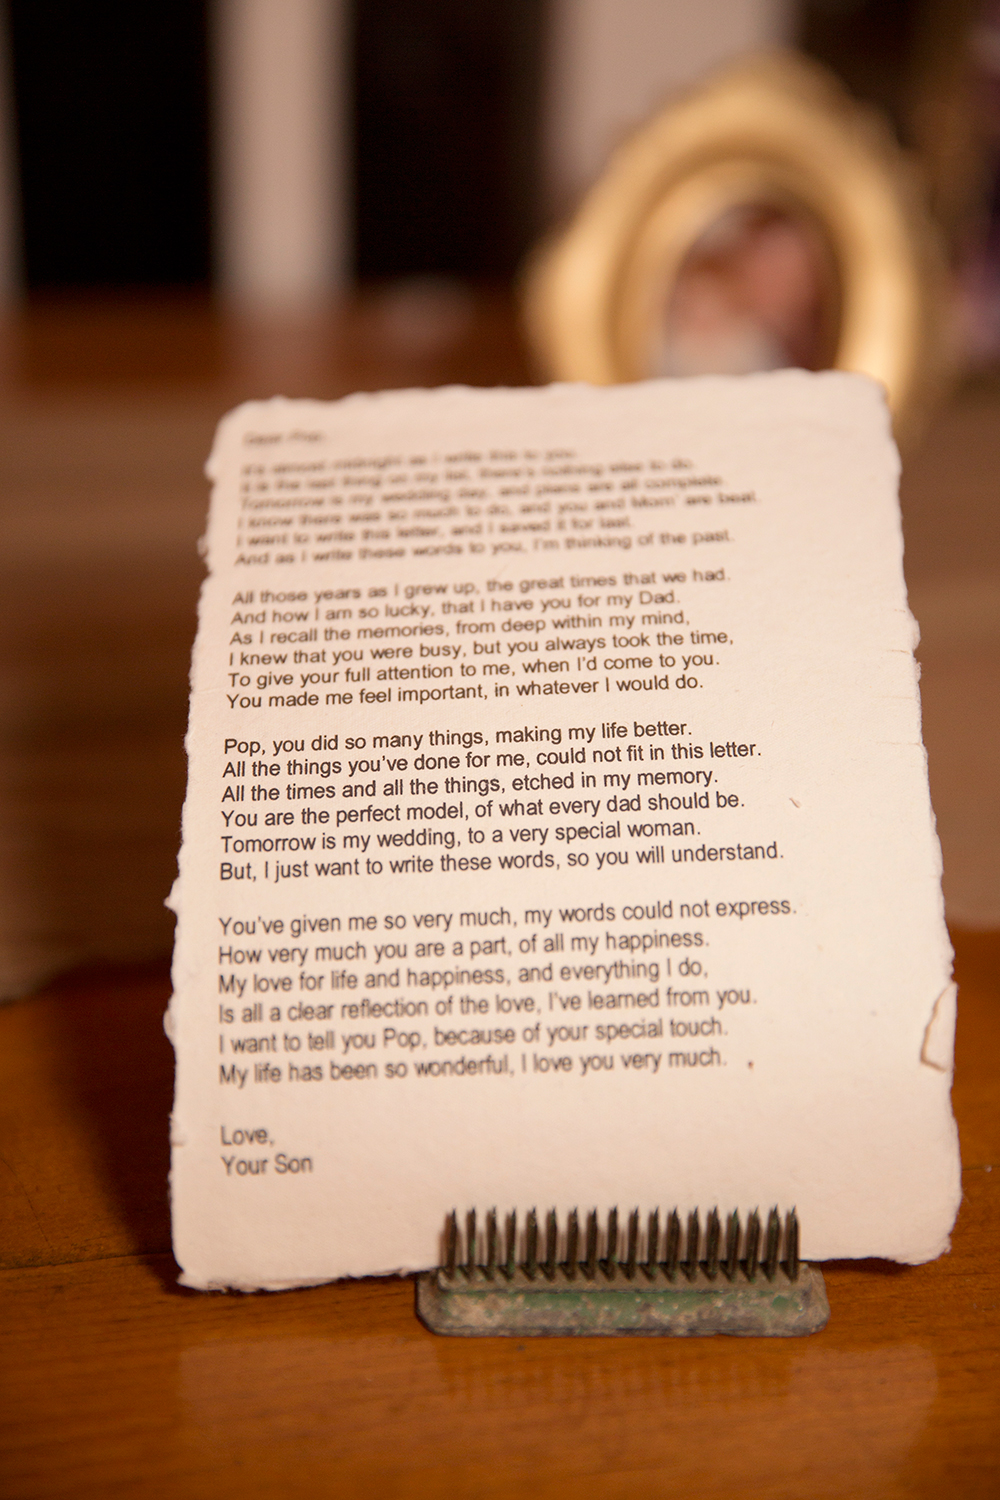 Dear Pop,
It's almost midnight as I write this to you.
It is the last thing on my list, there's nothing else to do.
Tomorrow is my wedding day, and plans are all complete.
I know there was so much to do, and you and Mom' are beat.
I want to write this letter, and I saved it for last.
And as I write these words to you, I'm thinking of the past.
All those years as I grew up, the great times that we had.
And how I am so lucky, that I have you for my Dad.
As I recall the memories, from deep within my mind,
I knew that you were busy, but you always took the time,
To give your full attention to me, when I'd come to you.
You made me feel important, in whatever I would do.
Pop, you did so many things, making my life better.
All the things you've done for me, could not fit in this letter.
All the times and all the things, etched in my memory.
You are the perfect model, of what every dad should be.
Tomorrow is my wedding, to a very special woman.
But, I just want to write these words, so you will understand.
You've given me so very much, my words could not express.
How very much you are a part, of all my happiness.
My love for life and happiness, and everything I do,
Is all a clear reflection of the love, I've learned from you.
I want to tell you Pop, because of your special touch.
My life has been so wonderful, I love you very much.
Love,
Your Son